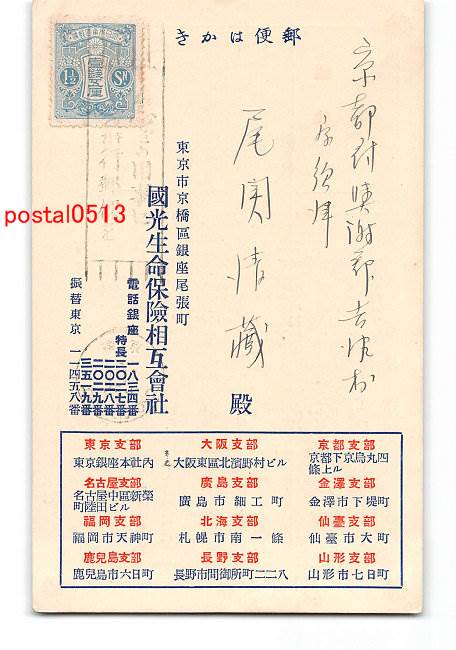 郵便はかき
1½ Sn
京都府與謝郡吉津村
字須津
尾関清藏
殿
東京市京橋區銀座尾張町
國光生命保險相互會社
電話銀座
一八三四番
特長三〇二七番
二〇二八番
二〇二九番
三五一九番
振替東京 一一四五八番
postal0513
東京支部
東京銀座本社內
大阪支部
大阪東區北濱野村ビル
京都支部
京都下京烏丸四
條上ル
名古屋支部
名古屋中區新榮
町陸田ビル
廣島支部
廣島市細工町
金澤支部
金澤市下堤町
福岡支部
福岡市天神町
北海支部
札幌市南一條
仙臺支部
仙臺市大町
鹿兒島支部
鹿兒島市六日町
長野支部
長野市問御所町一二二八
山形支部
山形市七日町